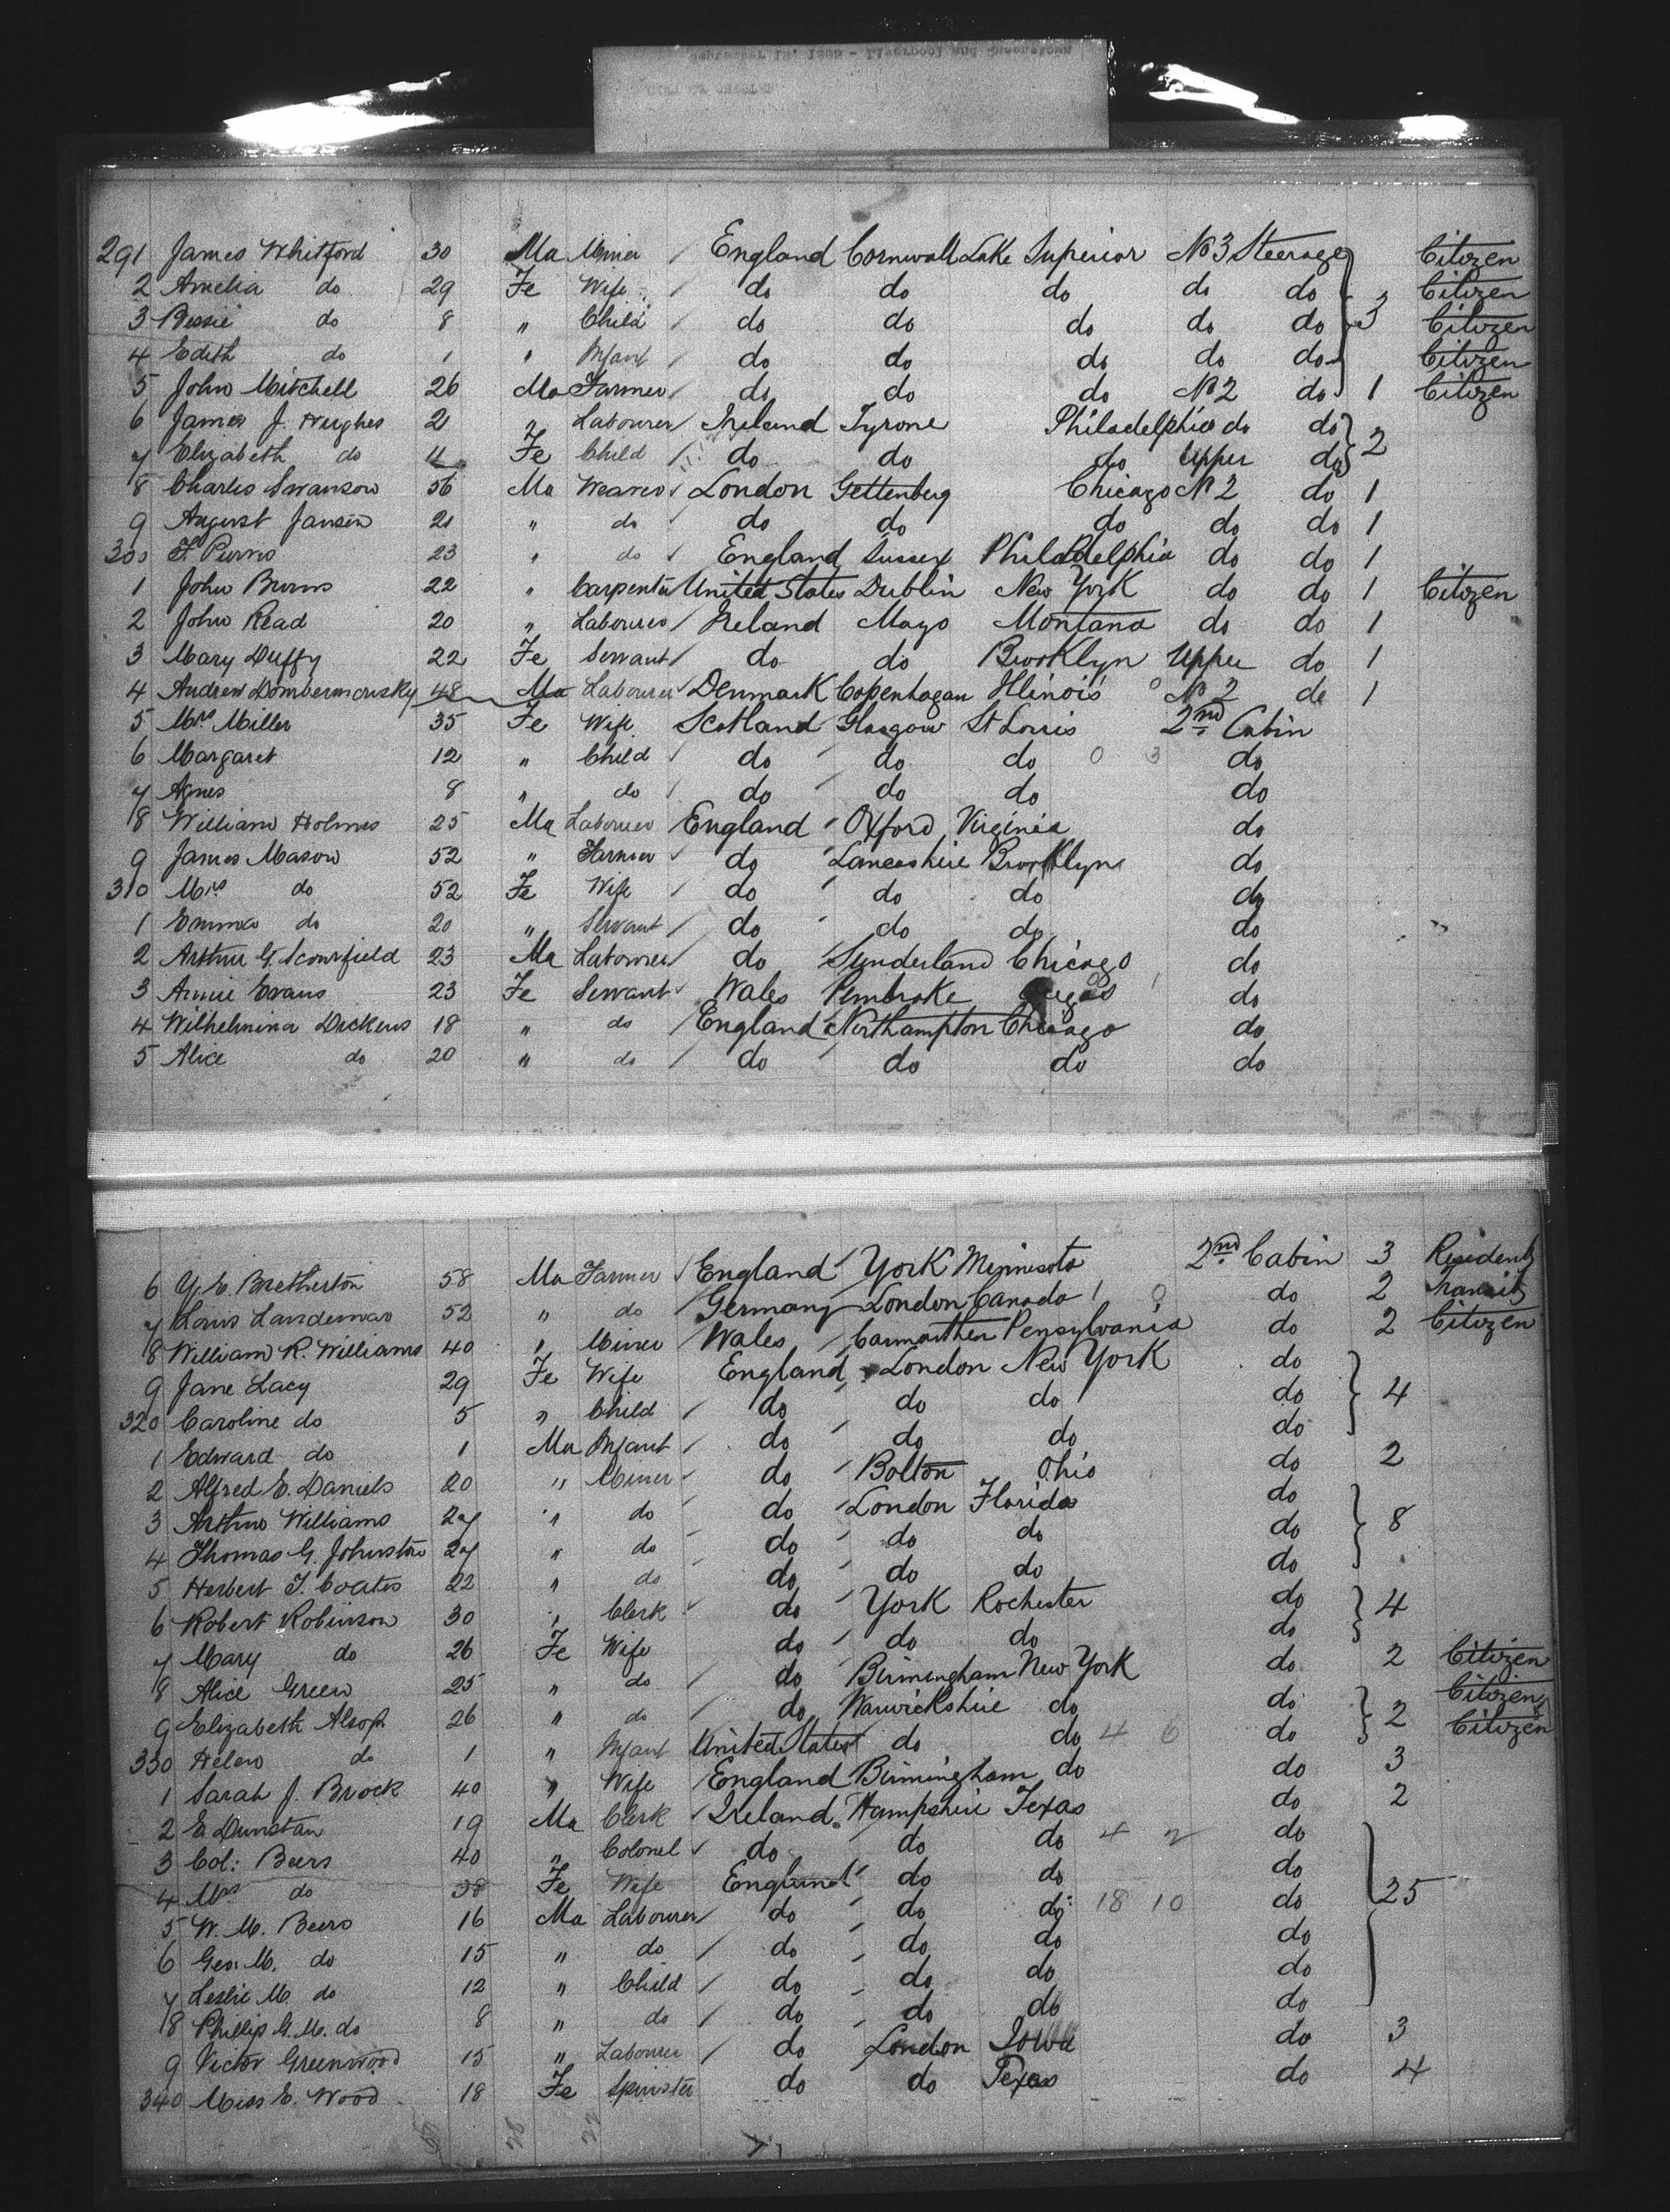 September 12, 1885 - Liverpool and Queenstown
CITY OF CHESTER
291 James Whitford 30 Ma Miner / England Cornwall Lake Superior No 3 Steerage Citizen
2 Amelia do 29 Fe Wife / do do do do do Citizen
3 Bessie do 8 " Child / do do do do do 3 Citizen
4 Edith do 1 " Infant / do do do do do Citizen
5 John Mitchell 26 Ma Farmer / do do do No 2 do 1 Citizen
6 James J. Hughes 21 " Labourer / Ireland Tyrone Philadelphia do do
7 Elizabeth do 11 Fe Child / do do do Upper do 2
8 Charles Swanson 56 Ma Weaver / London Gettenberg Chicago No 2 do 1
9 August Jansen 21 " do do do do do do 1
300 F Purvis 23 " do / England Sussex Philadelphia do do 1
1 John Burns 22 " Carpenter United States Dublin New York do do 1 Citizen
2 John Read 20 " Labourer / Ireland Mayo Montana do do 1
3 Mary Duffy 22 Fe Servant / do do Brooklyn Upper do 1
4 Andrew 48 Ma Labourer Denmark Copenhagan Illinois No 2 do 1
5 Mrs Miller 35 Fe Wife Scotland Glasgow St Louis 2nd Cabin
6 Margaret 12 " Child / do do do 0 3 do
7 Agnes 8 " do / do do do do
8 William Holmes 25 Ma Labourer England Oxford Virginia do
9 James Mason 52 " Farmer do Lancashire Brooklyn do
310 Mrs do 52 Fe Wife / do do do do
1 Emma do 20 " Servant / do do do do
2 Arthur G. Scourfield 23 Ma Labourer do Sunderland Chicago do
3 Annie Evans 23 Fe Servant Wales Pembroke do
4 Wilhelmina Dickens 18 " do / England Northampton Chicago do
5 Alice do 20 " do / do do do do
6 Y. E. Bretherton 58 Ma Farmer / England York Minnesota 2nd Cabin 3 Resident
7 Louis 52 " do Germany London Canada do 2 Transit
8 William R. Williams 40 " Miner Wales Carmarthen Pensylvania do 2 Citizen
9 Jane Lacy 29 Fe Wife England London New York do
320 Caroline do 5 " Child / do do do do 4
1 Edward do 1 Ma Infant / do do do do
2 Alfred E. Daniels 20 " Miner do Bolton Ohio do 2
3 Arthur Williams 27 " do do London Florida do
4 Thomas G. Johnston 27 " do do do do do 8
5 Herbert T. Coates 22 " do do do do do
6 Robert Robinson 30 " Clerk do York Rochester do 4
7 Mary do 26 Fe Wife do do do do
8 Alice Green 25 " do / do Birmingham New York do 2 Citizen
9 Elizabeth Alsop 26 " do / do Warwickshire do do Citizen
330 Helen do 1 " Infant United States do do 4 6 do 2 Citizen
1 Sarah J. Brock 40 " Wife England Birmingham do do 3
2 E Dunstan 19 Ma Clerk Ireland Hampshire Texas do 2
3 Col: Beers 40 " Colonel do do do 4 2 do
4 Mrs do 38 Fe Wife England do do do
5 W. M. Beers 16 Ma Labourer / do do do 18 10 do 25
6 Geo. M. do 15 " do / do do do do
7 Leslie M. do 12 " Child / do do do do
8 Phillip G. M. do 8 " do / do do do do
9 Victor Greenwood 15 " Labourer / do London Iowa do 3
340 Miss E. Wood 18 Fe Spinster do do Texas do 4